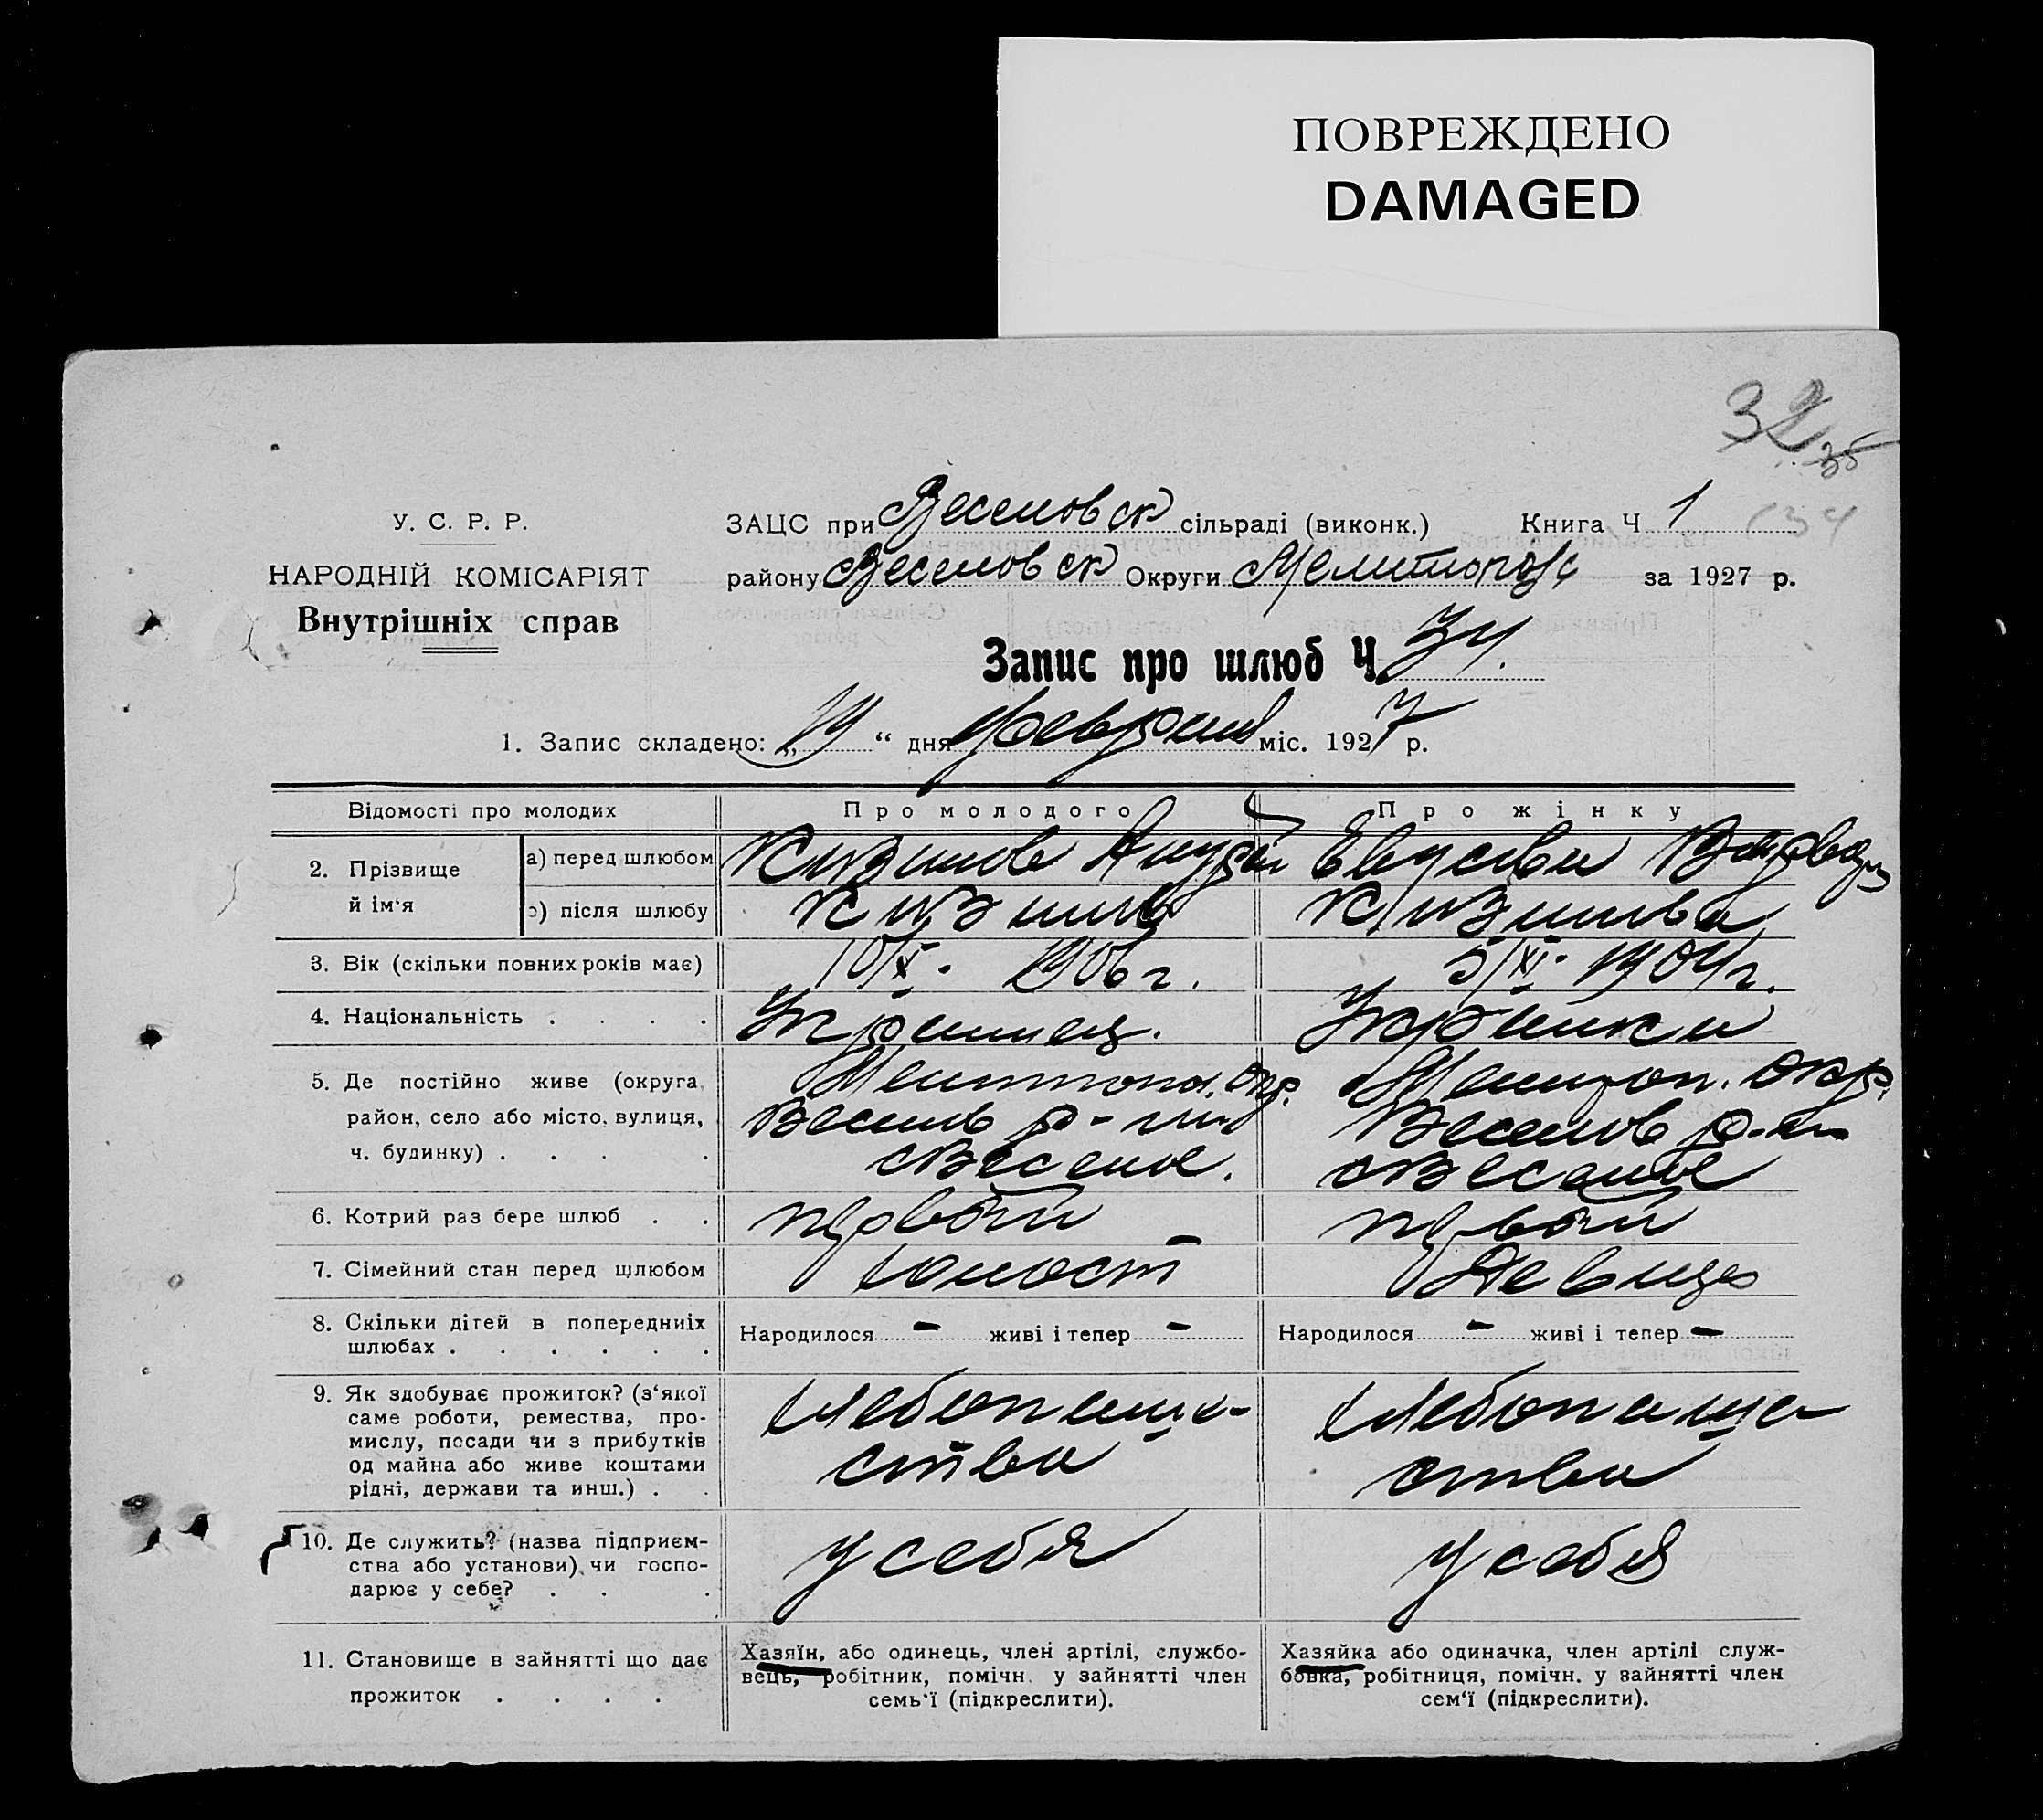 ПОВРЕЖДЕНО
DAMAGED
32
35
34
У. С. Р. Р.
НАРОДНІЙ КОМІСАРІЯТ
Внутрішніх справ
ЗАЦС при Веселовск сільраді (виконк.) Книга Ч 1
району Веселовск Округи Мелитопол за 1927 р.
Запис про шлюб Ч 34.
1. Запис складено: „19“ дня февраля міс. 1927 р.
Відомості про молодих Про молодого Про жінку
2. Прізвище й ім‘я
а) перед шлюбом Варвара
б) після шлюбу
3. Вік (скільки повних років має) 10/X. 1906 г. 5/XI. 1904 г.
4. Національність . . . . Украинец. Украинка
5. Де постійно живе (округа, Мелитопол. Окр. Мелитоп. окр.
район, село або місто, вулиця, Веселов р-на Веселов р-на
ч. будинку) . . . . с Веселое. с Веселое
6. Котрий раз бере шлюб . . первый первый
7. Сімейний стан перед шлюбом юност девица
8. Скільки дітей в попередніх Народилося - живі і тепер - Народилося - живі і тепер -
шлюбах . . . . . .
9. Як здобуває прожиток? (з‘якої хлебопаше- хлебопаше
саме роботи, ремества, про- ство ство
мислу, посади чи з прибутків
од майна або живе коштами
рідні, держави та инш.) . .
10. Де служить? (назва підприєм- у себя у себя
ства або установи) чи госпо-
дарює у себе? . . .
11. Становище в зайнятті що дає Хазяїн, або одинець, член артілі, службо- Хазяйка або одиначка, член артілі служ-
прожиток . . . . вець, робітник, помічн. у зайнятті член бовка, робітниця, помічн. у зайнятті член
семь‘ї (підкреслити). сем‘ї (підкреслити).